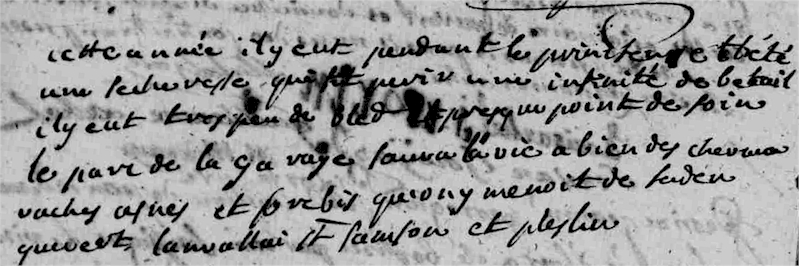 cette année il y eut pendant le printemps et l'été
une secheresse qui fit perir une infinité de betail
il y eut tres peu de bled et presque point de foin
le parc de la garaye sauva la vie a bien des chevaux
vaches asnes et brebis qu'on y menoit de
quevert lanvallai St samson et pleslin